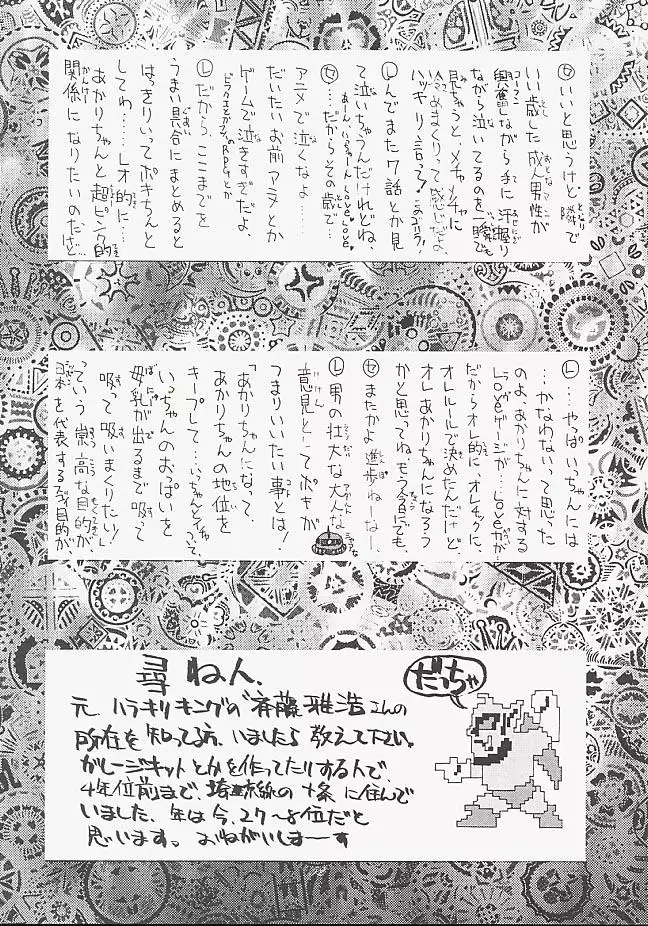 セ いいと思うけど隣で
いい歳した成人男性が
興奮しながら手に汗握り
ながら泣いてるのを一瞬でも
見ちゃうと、メチャメチャに
ハマりって感じだよ。
ハッキリ言って!
レ んでまた7話とか見
て泣いちゃうんだけれどね、
あーん、いっちゃーん Love Love。
セ …だからその歳で
アニメで泣くなよ……
だいたいお前アニメとか
ゲームで泣きすぎだよ。
RPGとか
レ だから ここまでを
うまい具合にまとめると
はっきりいってボキちんと
してわ……レオ的に……
あかりちゃんと超ピンク的
関係になりたいのだけど…
レ …やっぱいっちゃんには
…かなわないって思った
のよ。あかりちゃんに対する
Loveゲージが…Loveがが。
だからオレ的に、オレチックに、
オレルールで決めたんだけど、
オレあかりちゃんになろう
かと思ってね、もう今すぐにでも、
セ またかよ 進歩ねーなー、
レ 男の壮大な大人な
意見としてボキが
つまりいいたい事とは!
「あかりちゃんになって、
あかりちゃんの地位を
キープして、いっちゃんとイチャって、
いっちゃんのおぱいを
母乳が出るまで吸って
吸って吸いまくりたい!」
っていう崇高な目的が
日本を代表する目的が
尋ねん、
元、ハラキリキングの“斉藤雅浩さんの
所在を知ってる方、いましたら教えて下さい。
ガレージキットとかを作ってたりする人で、
4年位前まで、埼京線の十条に住んで
いました、年は今、27〜8位だと
思います。おねがいしまーーす
だっちゃ